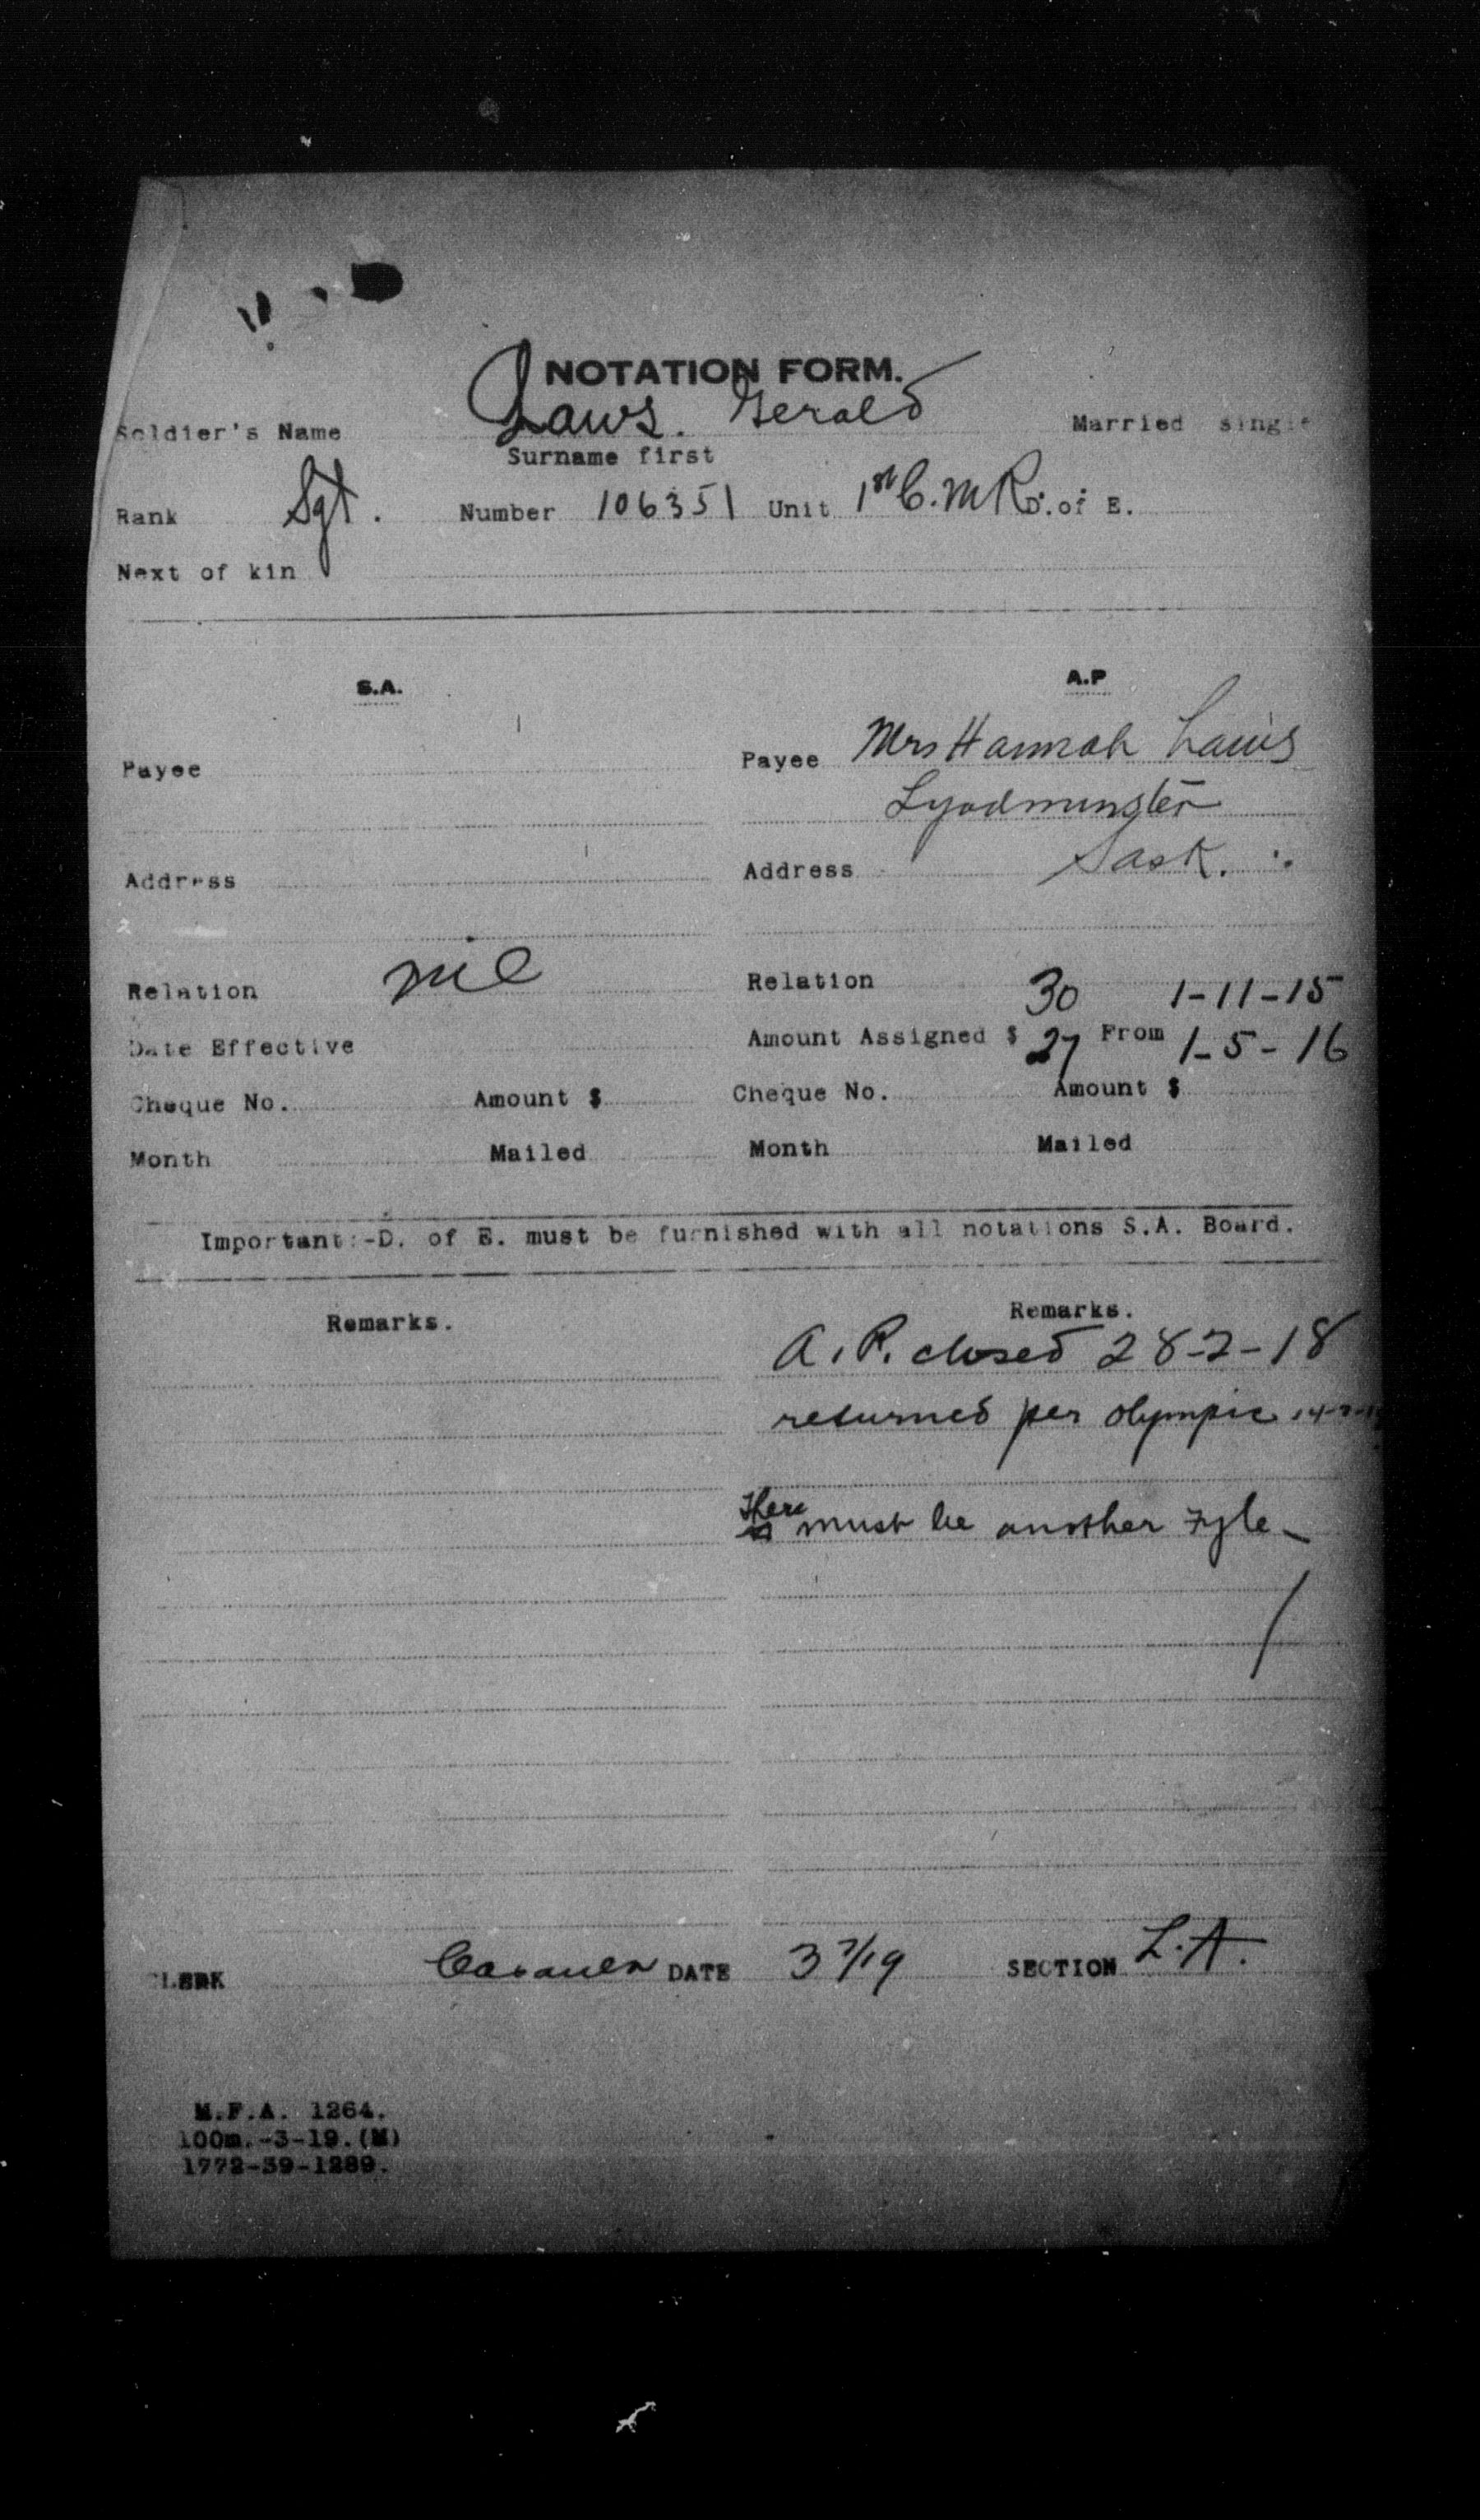 NOTATION FORM.
Soldier's Name Laws. Gerald Married single
Surname first
Rank Sgt. Number 106351 Unit 1st C.M.R. D. of E.
Next of kin
S.A. A.P
Payee Payee Mrs Hannah Laws
Lyodminster
Address Address Sask.
Relation nil Relation 30 1-11-15
Date Effective Amount Assigned $ 27 From 1-5-16
Cheque No. Amount $ Cheque No. Amount $
Month Mailed Month Mailed
Important:-D. of E. must be furnished with all notations S.A. Board.
Remarks. Remarks.
A.P. closed 28-2-18
returned per Olympic
There must be another Fyle
CLERK DATE 3 7/19 SECTION L.A.
M.F.A. 1264.
100m.-3-19.(M)
1772-39-1289.